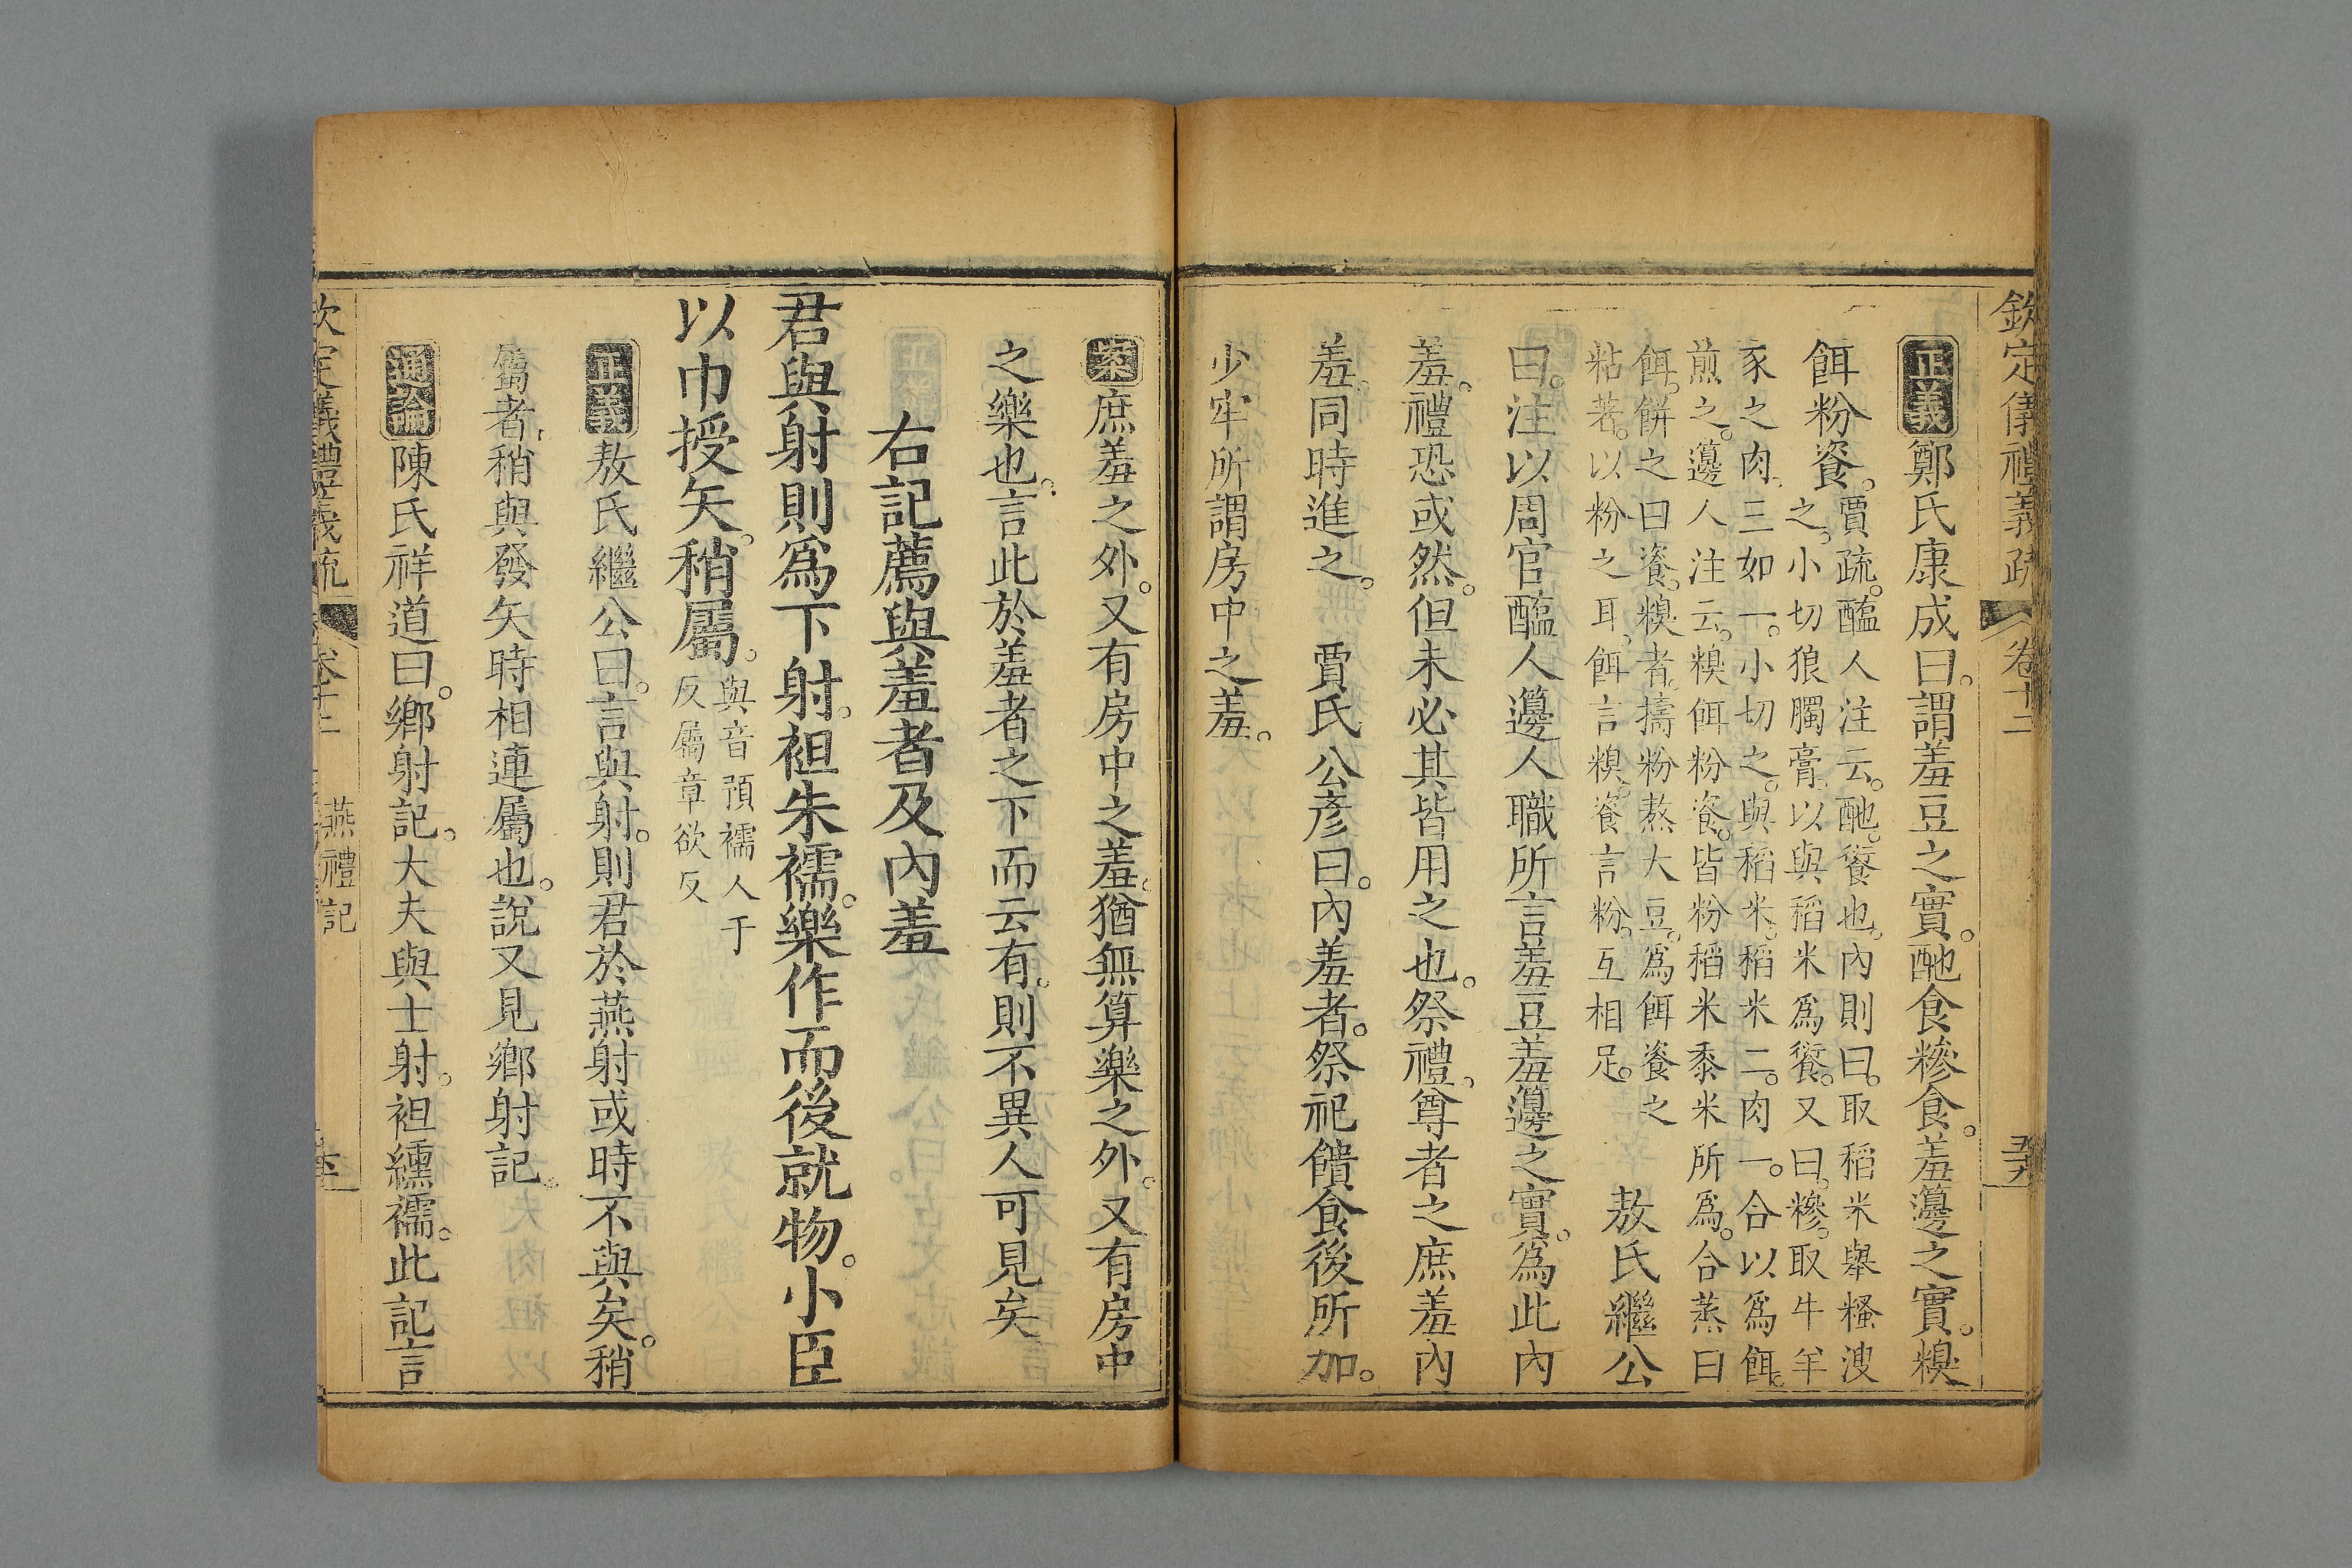 欽定儀禮義疏 卷十二
正義鄭氏康成曰。謂羞豆之實。酏食糝食。羞籩之實。糗
餌粉餈。賈疏。醢人注云。酏。餰也。內則曰。取稻米舉糔溲
之。小切狼臅膏。以與稻米爲餰。又曰。糝。取牛羊
豕之肉。三如一。小切之。與稻米。稻米二。肉一。合以爲餌。
煎之。籩人。注云。糗餌粉餈。皆粉稻米黍米所爲。合蒸曰
餌。餅之曰餈。糗者。擣粉熬大豆。爲餌餈之
粘著。以粉之耳。餌言糗。餈言粉。互相足。
敖氏繼公
曰。注以周官醢人籩人職所言羞豆羞籩之實。爲此內
羞。禮恐或然。但未必其皆用之也。祭禮。尊者之庶羞內
羞。同時進之。 賈氏公彥曰。內羞者。祭祀饋食後所加。
少牢所謂房中之羞。
案庶羞之外。又有房中之羞。猶無算樂之外。又有房中
之樂也。言此於羞者之下而云有。則不異人可見矣
右記薦與羞者及內羞
君與射則爲下射。袒朱襦。樂作而後就物。小臣
以巾授矢。稍屬。與音預襦人于
反屬章欲反
正義敖氏繼公曰。言與射。則君於燕射或時不與矣。稍
屬者。稍與發矢時相連屬也。說又見鄉射記。
通論陳氏祥道曰。鄉射記。大夫與士射。袒纁襦。此記言
欽定儀禮義疏 卷十二 燕禮記